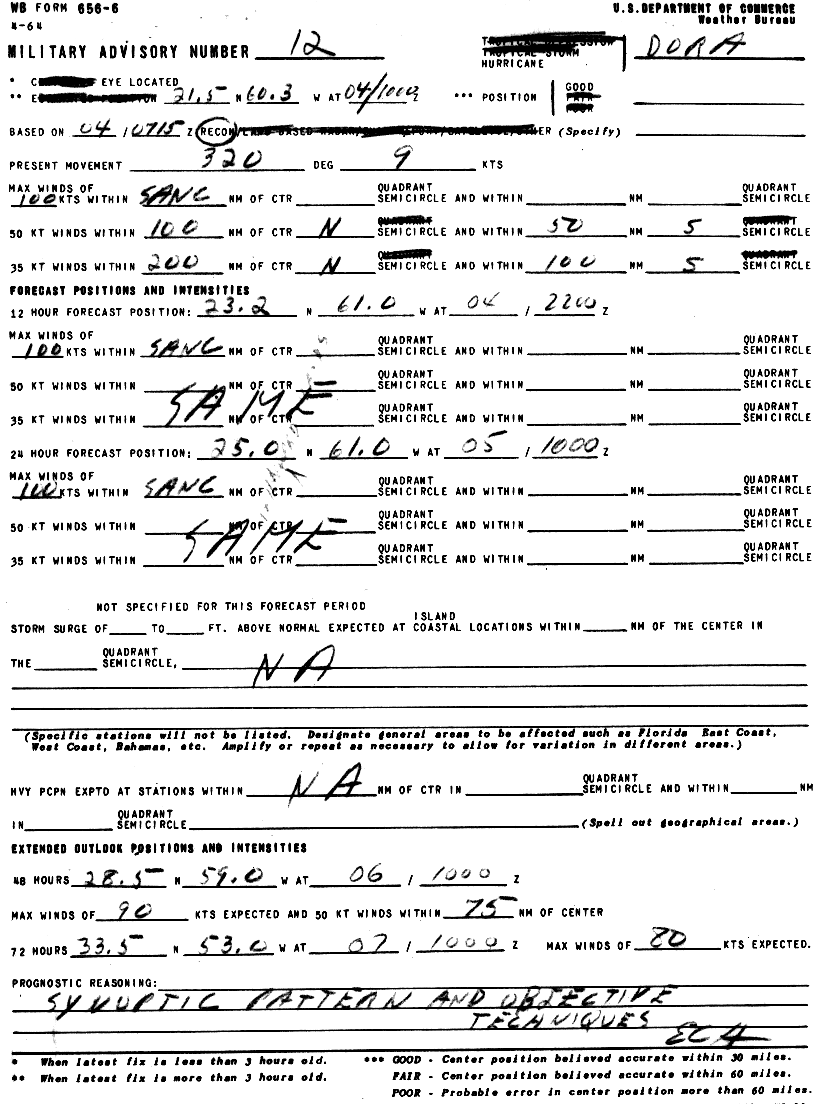 WB FORM 656-6 U.S.DEPARTMENT OF COMMERCE
4-64 Weather Bureau
MILITARY ADVISORY NUMBER 12 TROPICAL DEPRESSION TROPICAL STORM HURRICANE DORA
* EYE LOCATED
** 21.5 N 60.3 W AT 04/1000 Z *** POSITION GOOD FAIR POOR
BASED ON 04/0715 Z RECON/LAND BASED RADAR/ (Specify)
PRESENT MOVEMENT 320 DEG 9 KTS
MAX WINDS OF QUADRANT QUADRANT
100 KTS WITHIN SANC NM OF CTR SEMICIRCLE AND WITHIN NM SEMICIRCLE
50 KT WINDS WITHIN 100 NM OF CTR N QUADRANT SEMICIRCLE AND WITHIN 50 NM S QUADRANT SEMICIRCLE
35 KT WINDS WITHIN 200 NM OF CTR N QUADRANT SEMICIRCLE AND WITHIN 100 NM S QUADRANT SEMICIRCLE
FORECAST POSITIONS AND INTENSITIES
12 HOUR FORECAST POSITION: 23.2 N 61.0 W AT 04 / 2200 Z
MAX WINDS OF QUADRANT QUADRANT
100 KTS WITHIN SANC NM OF CTR SEMICIRCLE AND WITHIN NM SEMICIRCLE
50 KT WINDS WITHIN NM OF CTR QUADRANT SEMICIRCLE AND WITHIN NM QUADRANT SEMICIRCLE
SAME
35 KT WINDS WITHIN NM OF CTR QUADRANT SEMICIRCLE AND WITHIN NM QUADRANT SEMICIRCLE
24 HOUR FORECAST POSITION: 25.0 N 61.0 W AT 05 / 1000 Z
MAX WINDS OF QUADRANT QUADRANT
100 KTS WITHIN SANC NM OF CTR SEMICIRCLE AND WITHIN NM SEMICIRCLE
50 KT WINDS WITHIN NM OF CTR QUADRANT SEMICIRCLE AND WITHIN NM QUADRANT SEMICIRCLE
SAME
35 KT WINDS WITHIN NM OF CTR QUADRANT SEMICIRCLE AND WITHIN NM QUADRANT SEMICIRCLE
NOT SPECIFIED FOR THIS FORECAST PERIOD
STORM SURGE OF TO FT. ABOVE NORMAL EXPECTED AT ISLAND COASTAL LOCATIONS WITHIN NM OF THE CENTER IN
THE QUADRANT SEMICIRCLE, NA
(Specific stations will not be listed. Designate general areas to be affected such as Florida East Coast,
West Coast, Bahamas, etc. Amplify or repeat as necessary to allow for variation in different areas.)
HVY PCPN EXPTD AT STATIONS WITHIN NA NM OF CTR IN QUADRANT SEMICIRCLE AND WITHIN NM
IN QUADRANT SEMICIRCLE (Spell out geographical areas.)
EXTENDED OUTLOOK POSITIONS AND INTENSITIES
48 HOURS 28.5 N 59.0 W AT 06 / 1000 Z
MAX WINDS OF 90 KTS EXPECTED AND 50 KT WINDS WITHIN 75 NM OF CENTER
72 HOURS 33.5 N 53.0 W AT 07 / 1000 Z MAX WINDS OF 80 KTS EXPECTED.
PROGNOSTIC REASONING:
SYNOPTIC PATTERN AND OBJECTIVE
TECHNIQUES
* When latest fix is less than 3 hours old. *** GOOD - Center position believed accurate within 30 miles.
** When latest fix is more than 3 hours old. FAIR - Center position believed accurate within 60 miles.
POOR - Probable error in center position more than 60 miles.